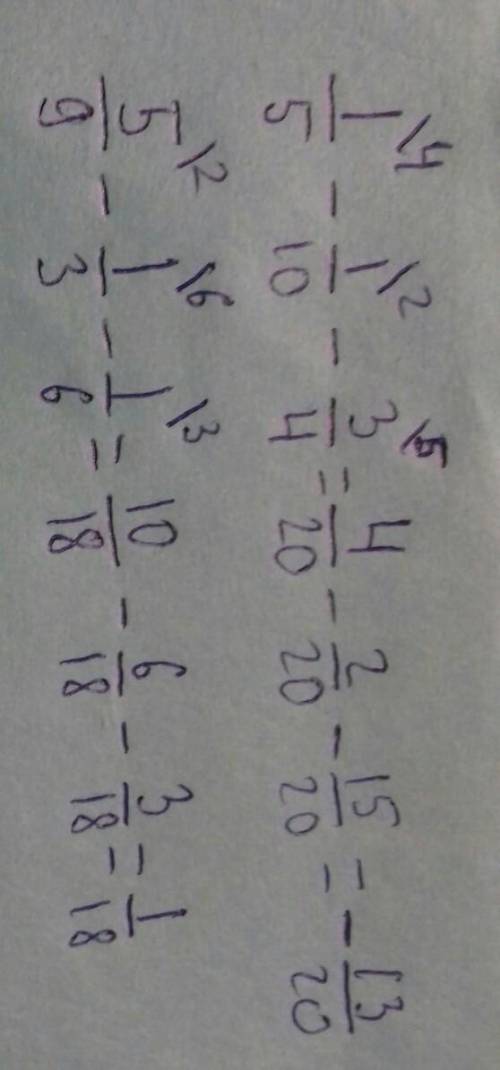 1/5\4 - 1/10\2 - 3/4\5 = 4/20 - 2/20 - 15/20 = - 13/20
5/9\2 - 1/3\6 - 1/6\3 = 10/18 - 6/18 - 3/18 = 1/18